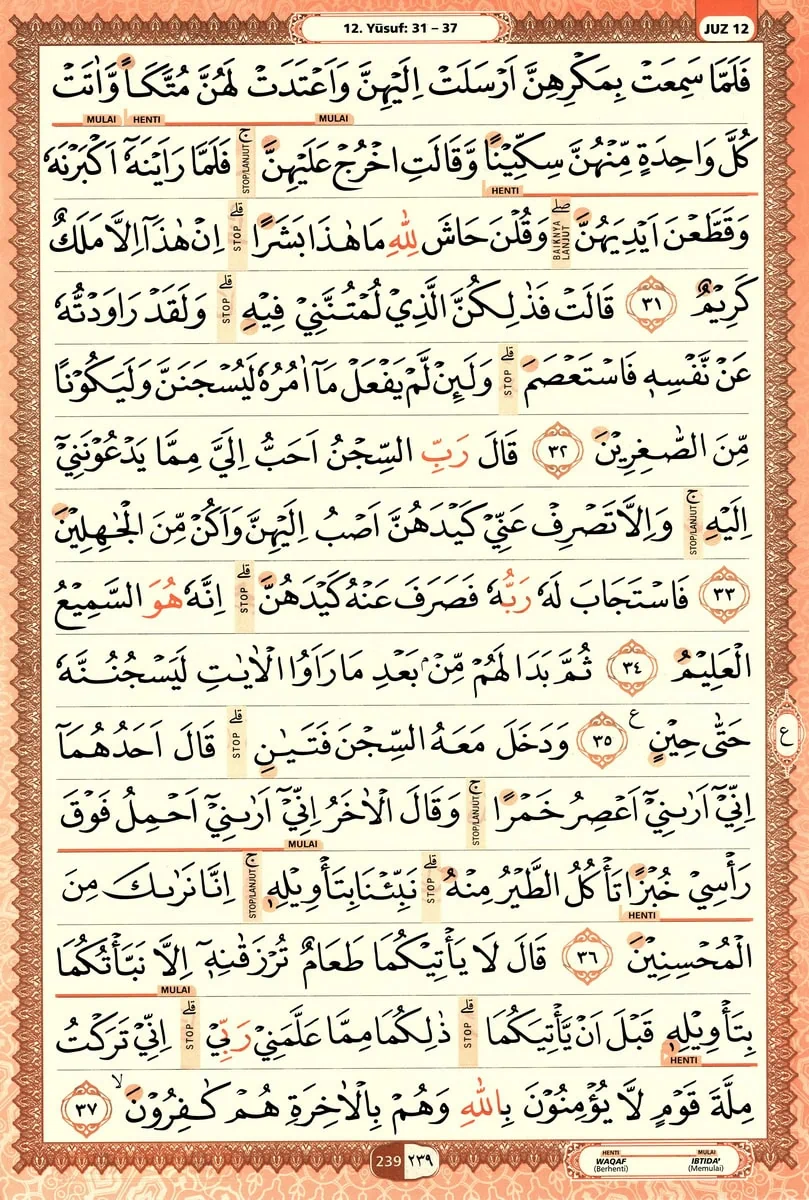 12. Yūsuf: 31 – 37
JUZ 12
فَلَمَّا سَمِعَتْ بِمَكْرِهِنَّ اَرْسَلَتْ اِلَيْهِنَّ وَاَعْتَدَتْ لَهُنَّ مُتَّكَـاً وَّاٰتَتْ
MULAI HENTI MULAI
كُلَّ وَاحِدَةٍ مِّنْهُنَّ سِكِّيْنًا وَّقَالَتِ اخْرُجْ عَلَيْهِنَّ ۚ STOP/LANJUT فَلَمَّا رَاَيْنَهٗٓ اَكْبَرْنَهٗ
HENTI
وَقَطَّعْنَ اَيْدِيَهُنَّ ۖ BAIKNYA LANJUT وَقُلْنَ حَاشَ لِلّٰهِ مَا هٰذَا بَشَرًا ۗ STOP اِنْ هٰذَآ اِلَّا مَلَكٌ
كَرِيْمٌ ٣١ قَالَتْ فَذٰلِكُنَّ الَّذِيْ لُمْتُنَّنِيْ فِيْهِ ۗ STOP وَلَقَدْ رَاوَدْتُّهٗ
عَنْ نَّفْسِهٖ فَاسْتَعْصَمَ ۗ STOP وَلَىِٕنْ لَّمْ يَفْعَلْ مَآ اٰمُرُهٗ لَيُسْجَنَنَّ وَلَيَكُوْنًا
مِّنَ الصّٰغِرِيْنَ ٣٢ قَالَ رَبِّ السِّجْنُ اَحَبُّ اِلَيَّ مِمَّا يَدْعُوْنَنِيْٓ
اِلَيْهِ ۚ STOP/LANJUT وَاِلَّا تَصْرِفْ عَنِّيْ كَيْدَهُنَّ اَصْبُ اِلَيْهِنَّ وَاَكُنْ مِّنَ الْجٰهِلِيْنَ
٣٣ فَاسْتَجَابَ لَهٗ رَبُّهٗ فَصَرَفَ عَنْهُ كَيْدَهُنَّ ۗ STOP اِنَّهٗ هُوَ السَّمِيْعُ
الْعَلِيْمُ ٣٤ ثُمَّ بَدَا لَهُمْ مِّنْۢ بَعْدِ مَا رَاَوُا الْاٰيٰتِ لَيَسْجُنُنَّهٗ
حَتّٰى حِيْنٍ ٣٥ ع وَدَخَلَ مَعَهُ السِّجْنَ فَتَيٰنِ ۗ STOP قَالَ اَحَدُهُمَآ
ع
اِنِّيْٓ اَرٰىنِيْٓ اَعْصِرُ خَمْرًا ۚ STOP/LANJUT وَقَالَ الْاٰخَرُ اِنِّيْٓ اَرٰىنِيْٓ اَحْمِلُ فَوْقَ
MULAI
رَأْسِيْ خُبْزًا تَأْكُلُ الطَّيْرُ مِنْهُ ۗ STOP نَبِّئْنَا بِتَأْوِيْلِهٖ ۚ STOP/LANJUT اِنَّا نَرٰىكَ مِنَ
HENTI
الْمُحْسِنِيْنَ ٣٦ قَالَ لَا يَأْتِيْكُمَا طَعَامٌ تُرْزَقٰنِهٖٓ اِلَّا نَبَّأْتُكُمَا
MULAI
بِتَأْوِيْلِهٖ قَبْلَ اَنْ يَّأْتِيَكُمَا ۗ STOP ذٰلِكُمَا مِمَّا عَلَّمَنِيْ رَبِّيْ ۗ STOP اِنِّيْ تَرَكْتُ
HENTI
مِلَّةَ قَوْمٍ لَّا يُؤْمِنُوْنَ بِاللّٰهِ وَهُمْ بِالْاٰخِرَةِ هُمْ كٰفِرُوْنَ ۙ ٣٧
239 ٢٣٩
HENTI MULAI
WAQAF IBTIDA'
(Berhenti) (Memulai)